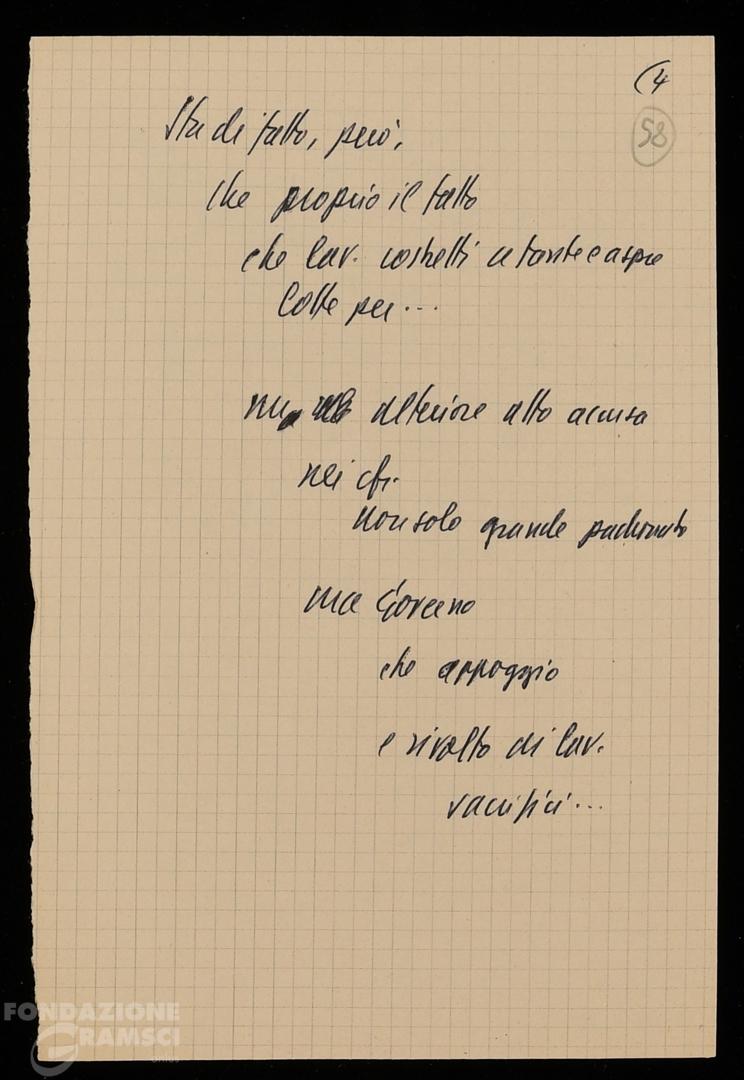 (4
58
Sta di fatto, però,
che proprio il fatto
che lav. costretti a tante e aspre
lotte per...
ulteriore atto accusa
nei cfr.
non solo grande padronato
ma Governo
che appoggio
e rivolto ai lav.
sacrifici...
FONDAZIONE
GRAMSCI
onlus